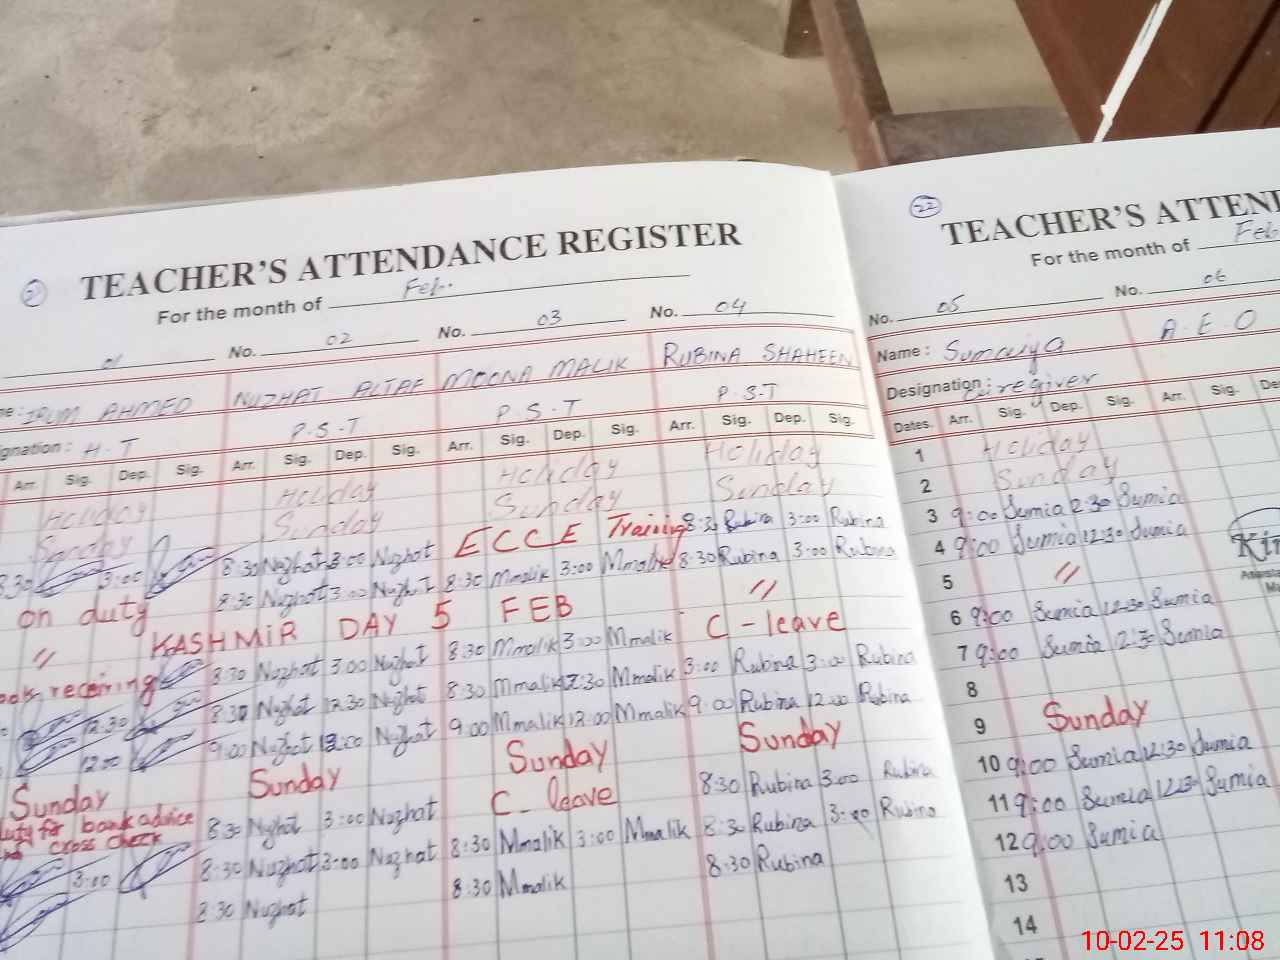 21
TEACHER'S ATTENDANCE REGISTER
For the month of Feb..
01 No. 02 No. 03 No. 04
IRUM AHMED NUZHAT ALTAF MOONA MALIK RUBINA SHAHEEN
Designation : H.T P.S.T P.S.T P.S.T
Arr. Sig. Dep. Sig. Arr. Sig. Dep. Sig. Arr. Sig. Dep. Sig. Arr. Sig. Dep. Sig.
Holiday Holiday Holiday Holiday
Sunday Sunday Sunday Sunday
8:30 3:00 8:30 Nuzhat 3:00 Nuzhat ECCE Training 8:30 Rubina 3:00 Rubina
on duty 8:30 Nuzhat 3:00 Nuzhat 8:30 Mmalik 3:00 Mmalik 8:30 Rubina 3:00 Rubina
" KASHMIR DAY 5 FEB "
receiving 8:30 Nuzhat 3:00 Nuzhat 8:30 Mmalik 3:00 Mmalik C - leave
12:30 8:30 Nuzhat 12:30 Nuzhat 8:30 Mmalik 12:30 Mmalik 3:00 Rubina 3:00 Rubina
12:00 9:00 Nuzhat 12:00 Nuzhat 9:00 Mmalik 12:00 Mmalik 9:00 Rubina 12:00 Rubina
Sunday Sunday Sunday Sunday
duty for bank advice
cross check 8:30 Nuzhat 3:00 Nuzhat C - leave 8:30 Rubina 3:00 Rubina
3:00 8:30 Nuzhat 3:00 Nuzhat 8:30 Mmalik 3:00 Mmalik 8:30 Rubina 3:00 Rubina
8:30 Nuzhat 8:30 Mmalik 8:30 Rubina
22
TEACHER'S ATTEN
For the month of Feb
No. 05 No. 06
Name : Sumaiya A.E.O
Designation :
Dates. Arr. Sig. Dep. Sig. Arr. Sig. De
1 Holiday
2 Sunday
3 9:00 Sumia 12:30 Sumia
4 9:00 Sumia 12:30 Sumia
5 "
6 9:00 Sumia 12:30 Sumia
7 9:00 Sumia 12:30 Sumia
8
9 Sunday
10 9:00 Sumia 12:30 Sumia
11 9:00 Sumia 12:30 Sumia
12 9:00 Sumia
13
14
10-02-25 11:08